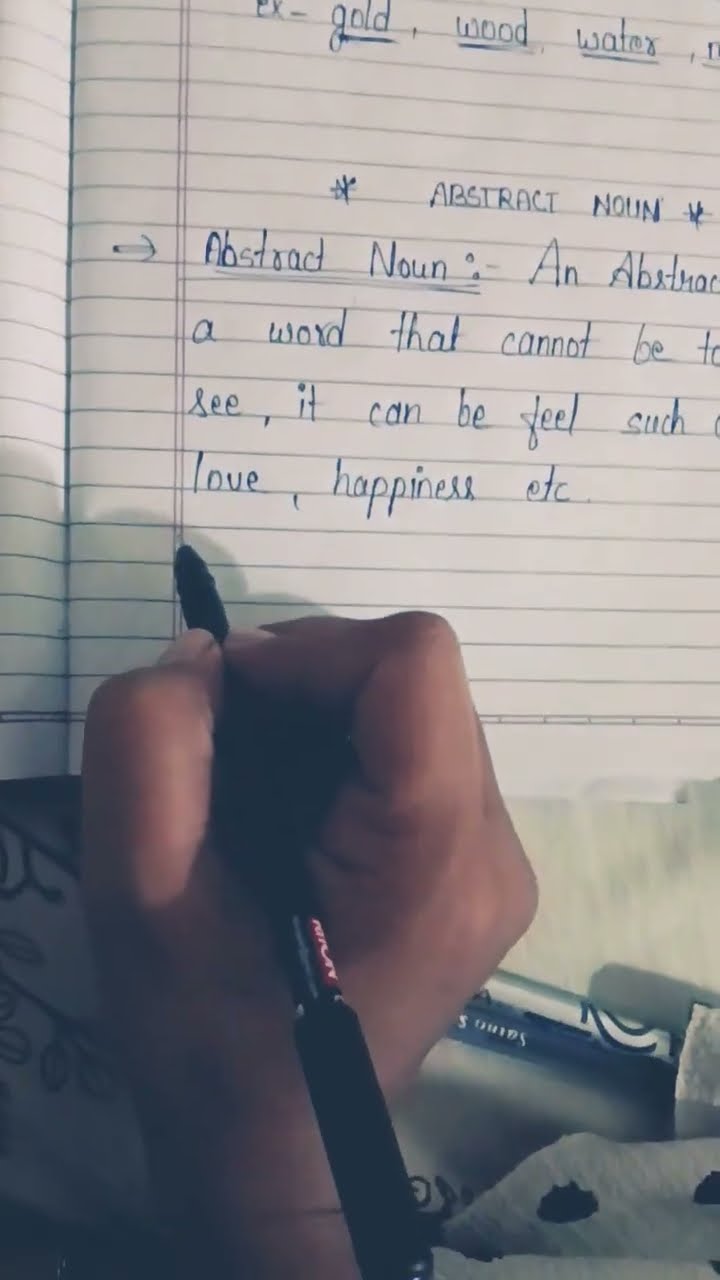 ex- gold, wood, water,
* ABSTRACT NOUN *
→ Abstract Noun :- An Abstrac
a word that cannot be to
see, it can be feel such
love, happiness etc.